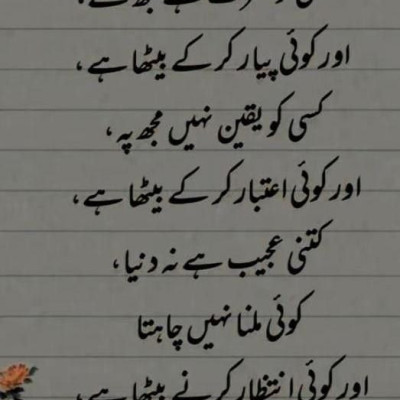 ہے مجھ سے،
اور کوئی پیار کر کے بیٹھا ہے،
کسی کو یقین نہیں مجھ پہ،
اور کوئی اعتبار کر کے بیٹھا ہے،
کتنی عجیب ہے نہ دنیا،
کوئی ملنا نہیں چاہتا
اور کوئی انتظار کرنے بیٹھا ہے،